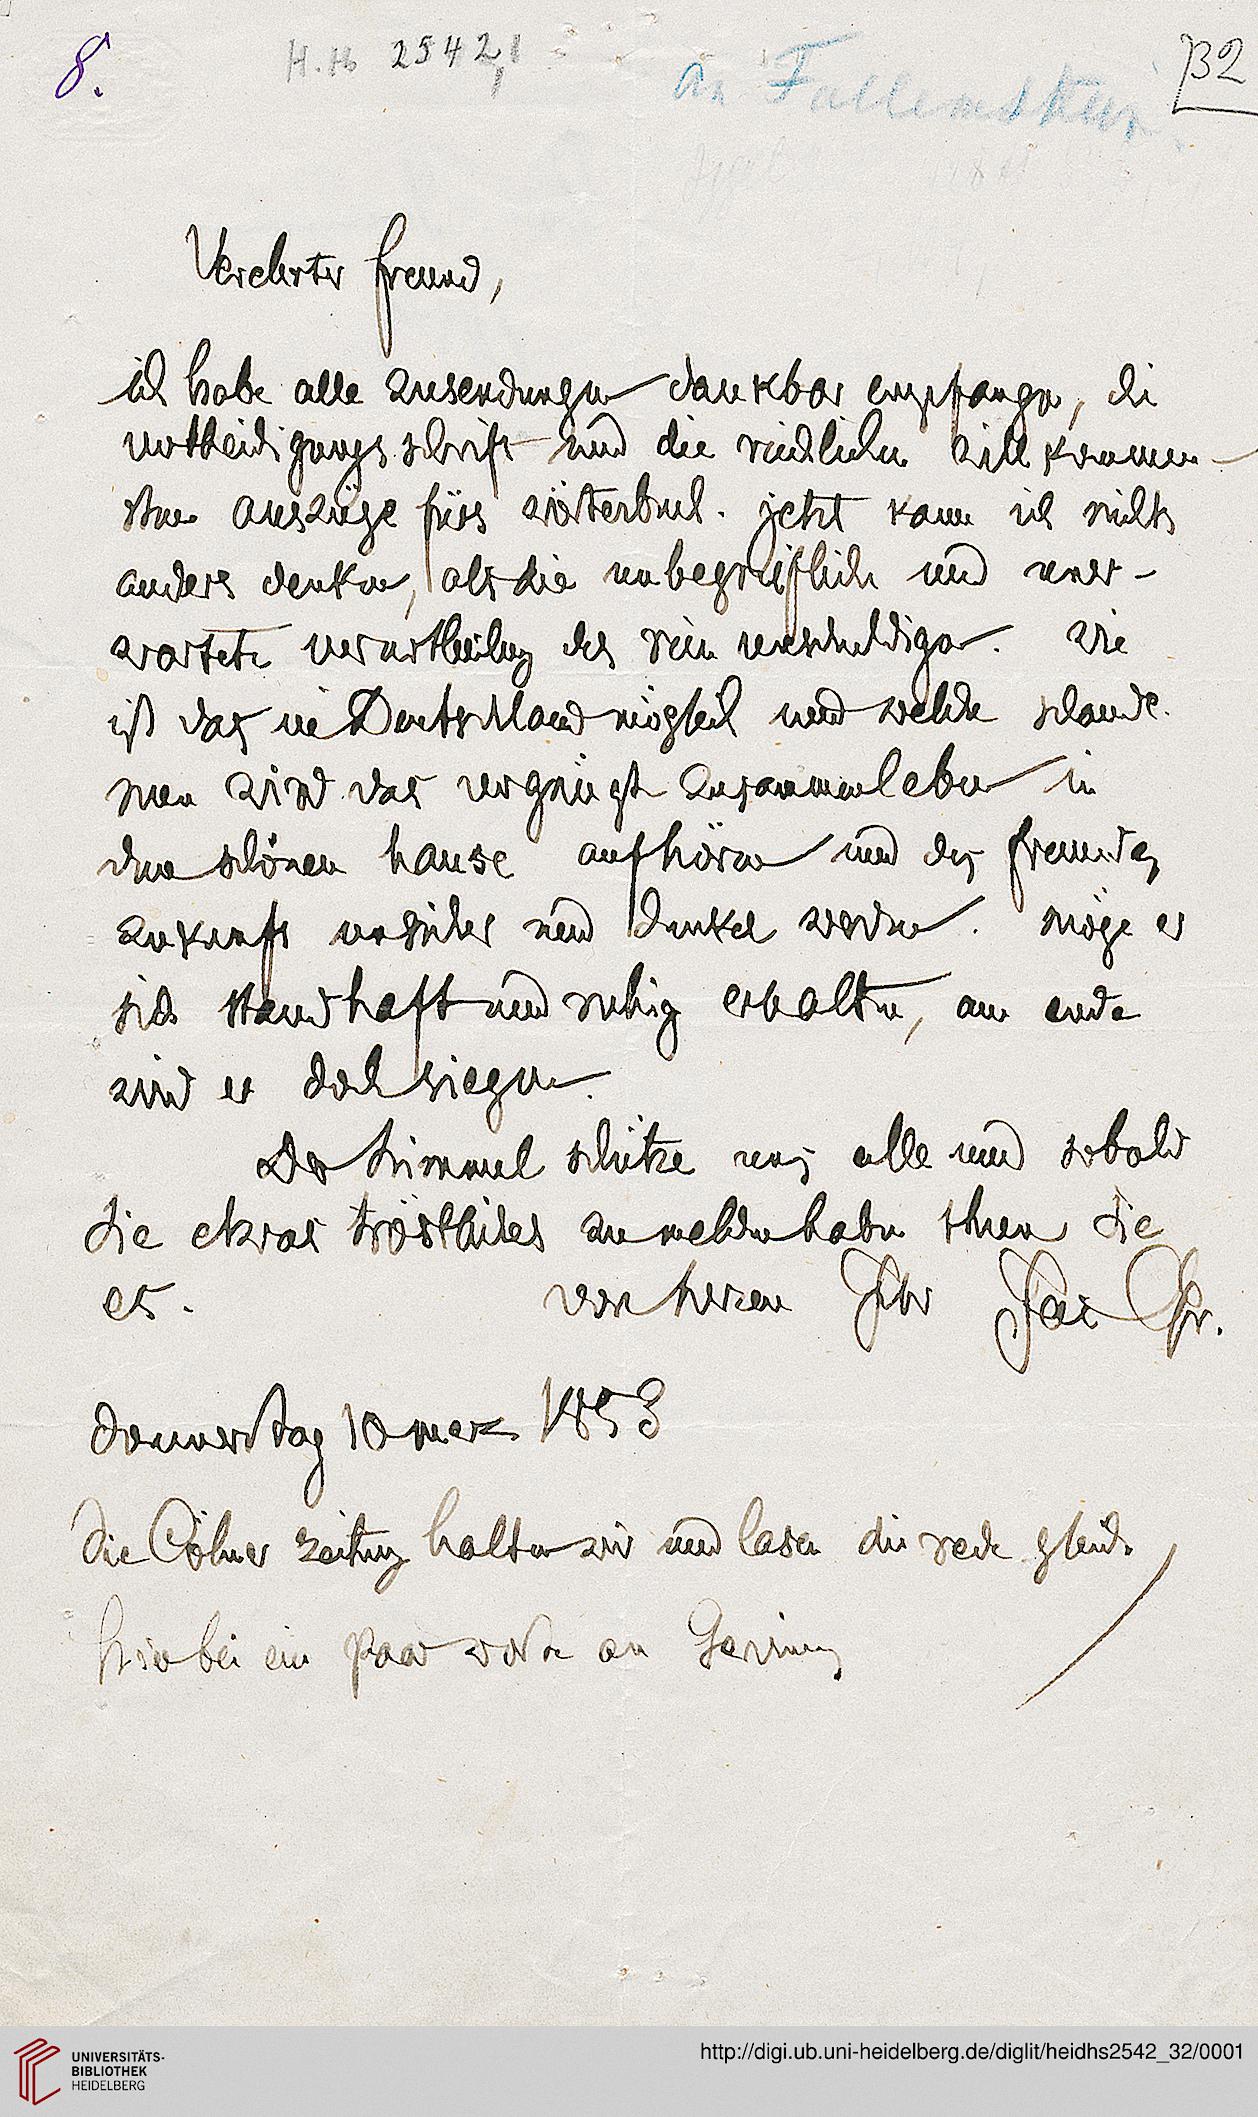 8.
H.Hs 2542,1
An Fallenstein
32
Verehrter freund,
ich habe alle zusendungen dankbar empfangen, die
vertheidigungsschrift und die reichlichen willkommen-
sten auszüge fürs wörterbuch. jetzt kann ich nichts
anders denken, als die unbegreifliche und uner-
wartete verurtheilung des rein unschuldigen. Wie
ist das in Deutschland möglich und welche schande.
nun wird das vergnügte zusammenleben in
dem schönen hause aufhören und des freundes
zukunft unsicher und dunkel werden. möge er
sich standhaft und ruhig erhalten, am ende
wird er doch siegen.
Der himmel schütze uns alle und sobald
sie etwas tröstliches zu melden haben thun sie
es. von herzen Ihr Jac Gr.
donnerstag 10 merz 1853
die Cölner zeitung halten wir und lasen die rede gleich.
hierbei ein paar worte an Gervinus
UNIVERSITÄTS-
BIBLIOTHEK
HEIDELBERG
http://digi.ub.uni-heidelberg.de/diglit/heidhs2542_32/0001